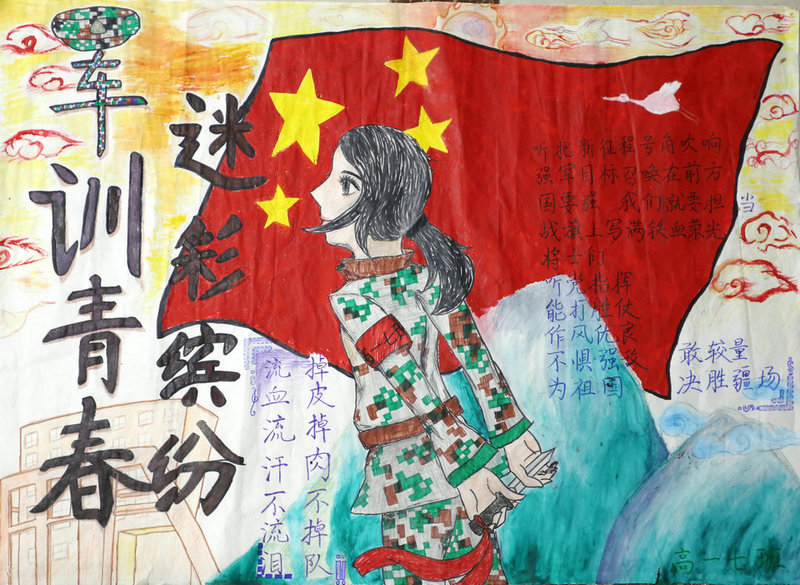 军训青春
迷彩缤纷
听把新征程号角吹响
强军目标召唤在前方
国要强 我们就要担当
战旗上写满铁血荣光
将士们
听党指挥
能打胜仗
作风优良
不惧强敌 敢较量
为祖国 决胜疆场
掉皮掉肉不掉队
流血流汗不流泪
高一七班